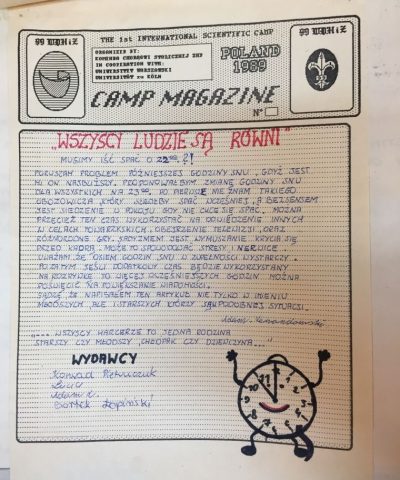 THE 1st INTERNATIONAL SCIENTIFIC CAMP
ORGANIZED BY:
KOMENDA CHORĄGWI STOŁECZNEJ ZHP
IN COOPERATION WITH:
UNIWERSYTET WARSZAWSKI
UNIVERSITÄT zu KÖLN
POLAND
1989
CAMP MAGAZINE
N°
„WSZYSCY LUDZIE SĄ RÓWNI"
MUSIMY IŚĆ SPAĆ O 22°°?!
PORUSZAM PROBLEM PÓŹNIEJSZEJ GODZINY SNU, GDYŻ JEST
MI ON NAJBLIŻSZY. PROPONOWAŁBYM ZMIANĘ GODZINY SNU
DLA WSZYSTKICH NA 23°°. PO PIERWSZE NIE ZNAM TAKIEGO
OBOZOWICZA, KTÓRY SZEDŁBY SPAĆ WCZEŚNIEJ, A BEZSENSEM
JEST SIEDZENIE W POKOJU GDY NIE CHCE SIĘ SPAĆ. MOŻNA
PRZECIEŻ TEN CZAS WYKORZYSTAĆ NA ODWIEDZENIE INNYCH
W CELACH TOWARZYSKICH, OBEJRZENIE TELEWIZJI, ORAZ
RÓŻNORODNE GRY. SADYZMEM JEST WYMUSZANIE KRYCIA SIĘ
PRZED KADRĄ. MOŻE TO SPOWODOWAĆ STRESY I NERWICE.
UWAŻAM, ŻE OSIEM GODZIN SNU W ZUPEŁNOŚCI WYSTARCZY.
POZATYM JEŚLI DODATKOWY CZAS BĘDZIE WYKORZYSTANY
NA ROZRYWKĘ TO WIĘCEJ WCZEŚNIEJSZYCH GODZIN MOŻNA
POŚWIĘCIĆ NA POWIĘKSZANIE WIADOMOŚCI.
SĄDZĘ, ŻE NAPISAŁEM TEN ARTYKUŁ NIE TYLKO W IMIENIU
MŁODSZYCH, ALE I STARSZYCH KTÓRZY SĄ W PODOBNEJ SYTUACJI.
Adam
„... WSZYSCY HARCERZE TO JEDNA RODZINA
STARSZY CZY MŁODSZY, CHŁOPAK CZY DZIEWCZYNA..."
WYDAWCY
Konrad Pietruczuk
Adam L.
Bartek Łapiński
12
1
2
3
4
5
6
7
8
9
10
11